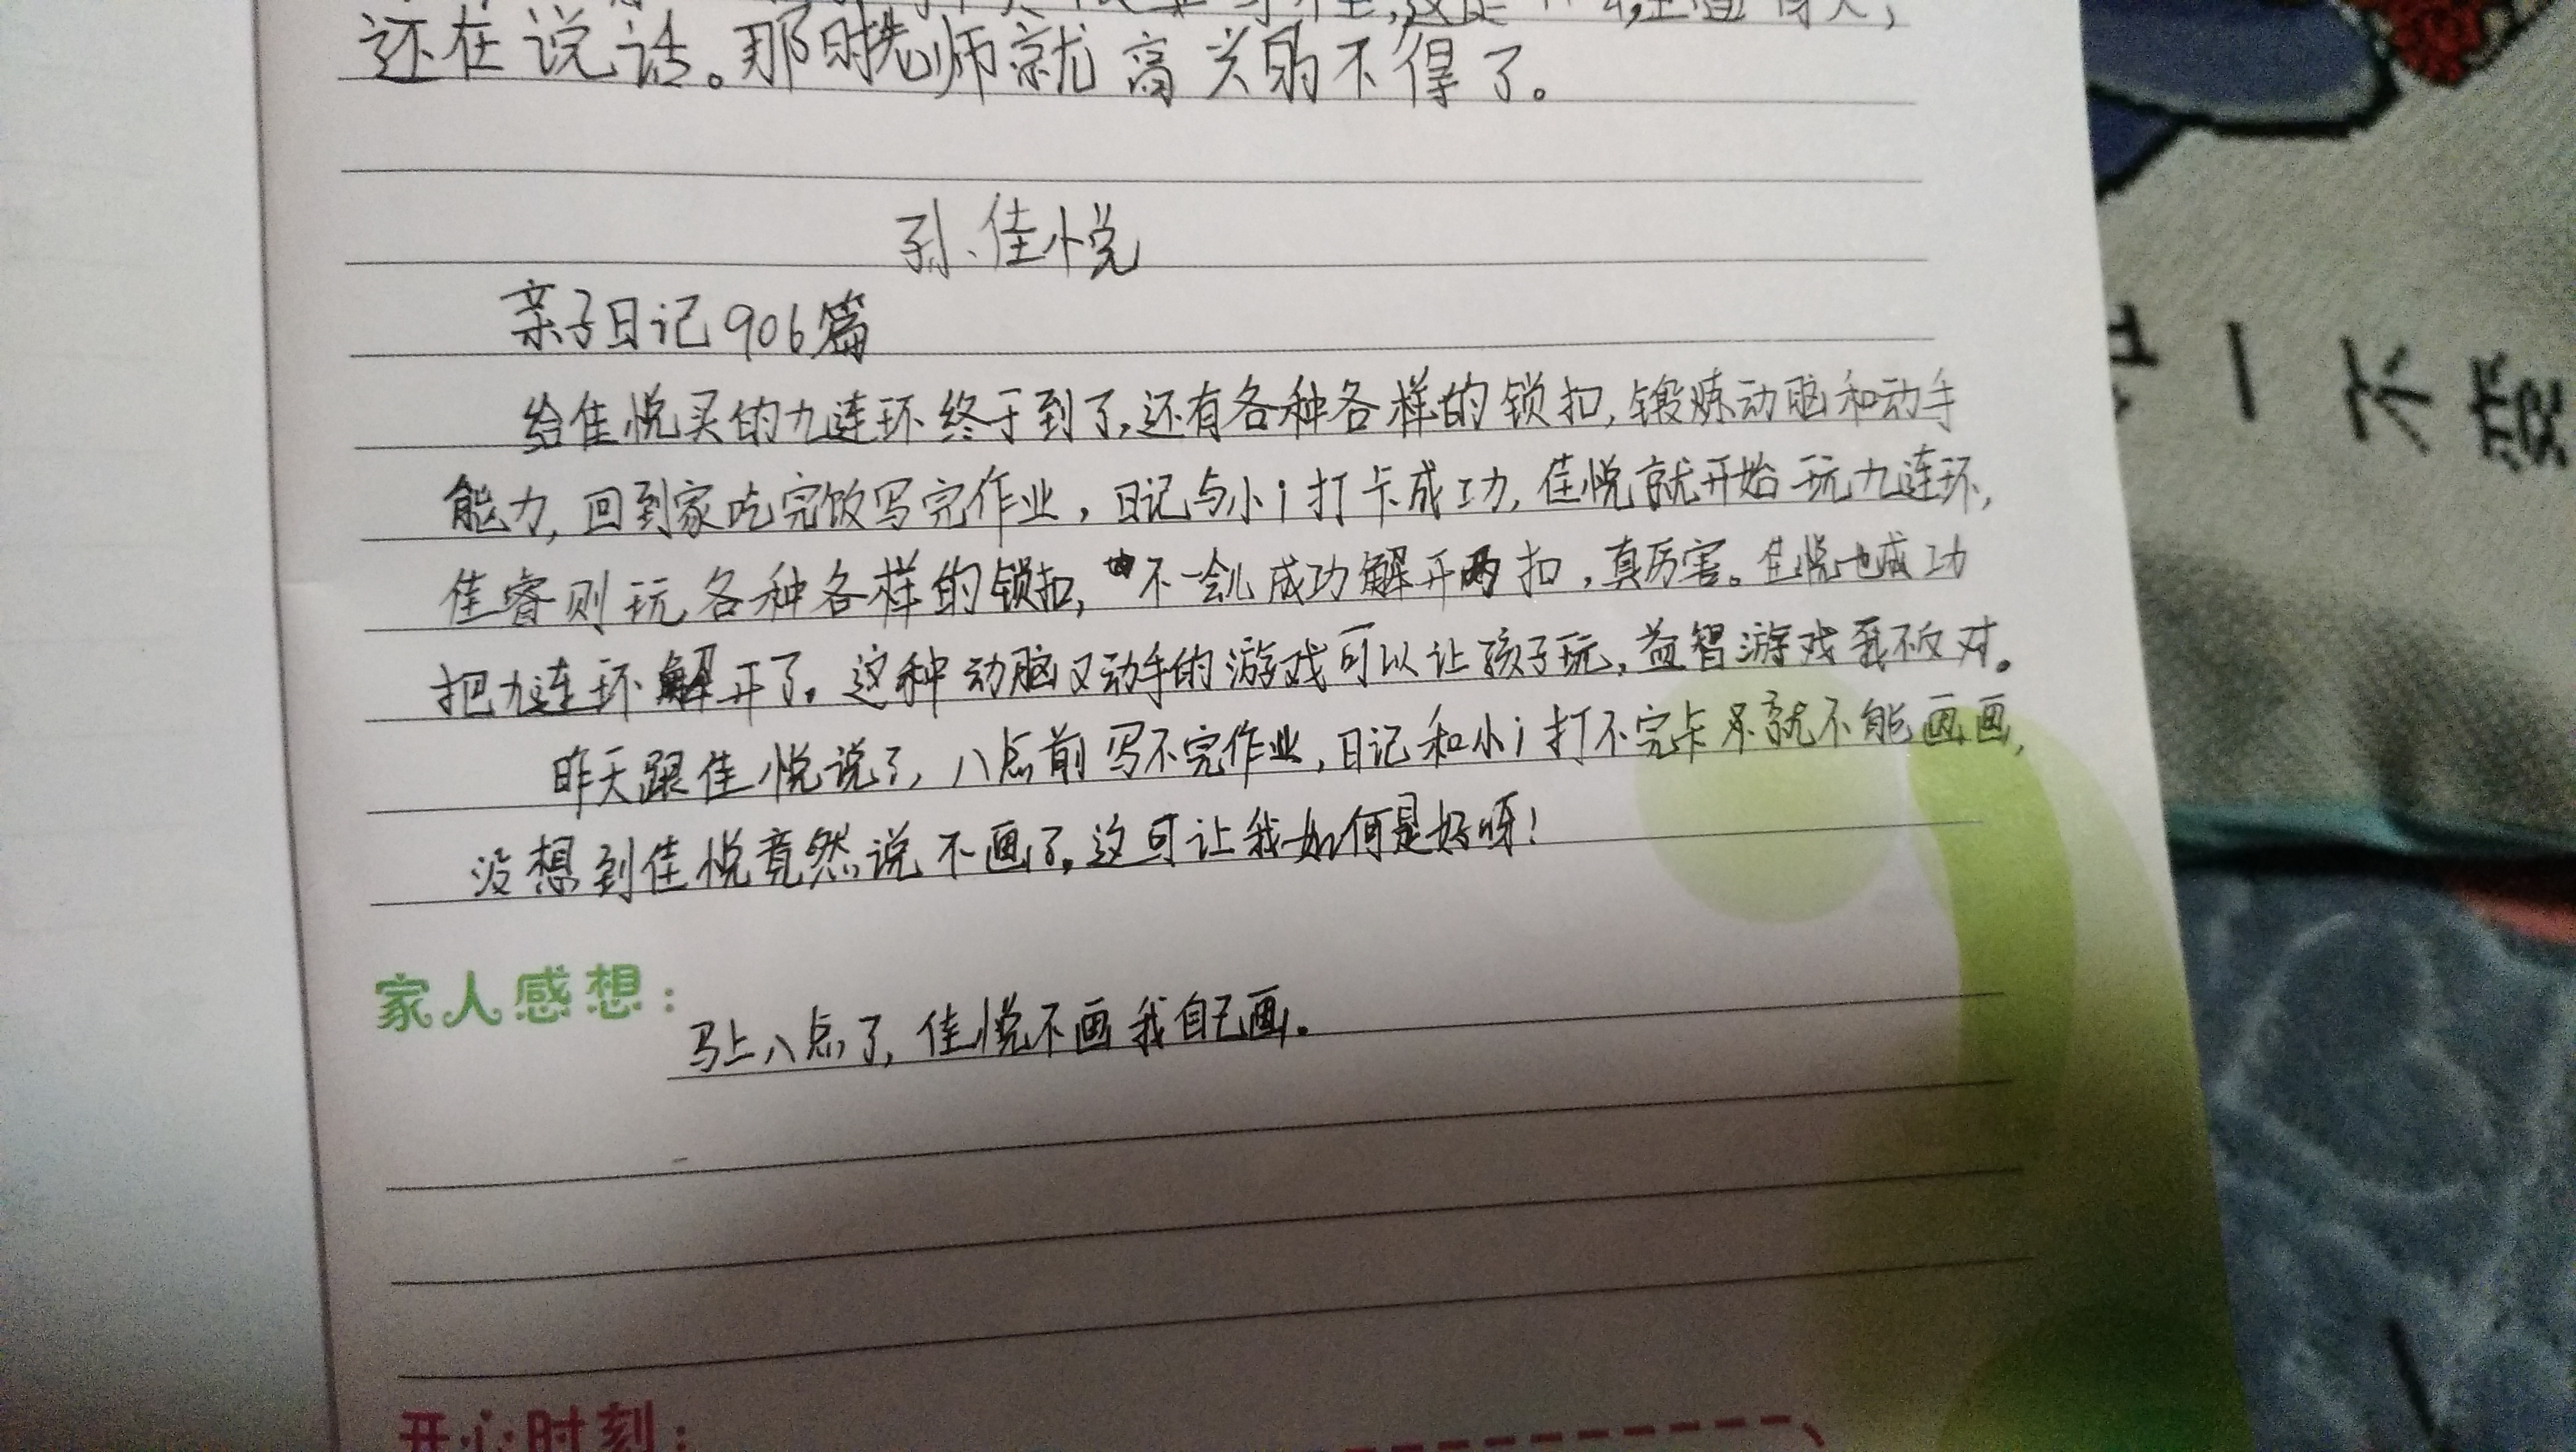 还在说话。那时老师就高兴的不得了。
孙佳悦
亲子日记906篇
给佳悦买的九连环终于到了,还有各种各样的锁扣,锻炼动脑和动手
能力,回到家吃完饭写完作业,日记与小i打卡成功,佳悦就开始玩九连环,
佳睿则玩各种各样的锁扣,不一会儿成功解开两扣,真厉害。佳悦也成功
把九连环解开了。这种动脑又动手的游戏可以让孩子玩,益智游戏我不反对。
昨天跟佳悦说了,八点前写不完作业,日记和小i打不完卡就不能画画,
没想到佳悦竟然说不画了,这可让我如何是好呀!
家人感想:
马上八点了,佳悦不画我自己画。
开心时刻:
一不